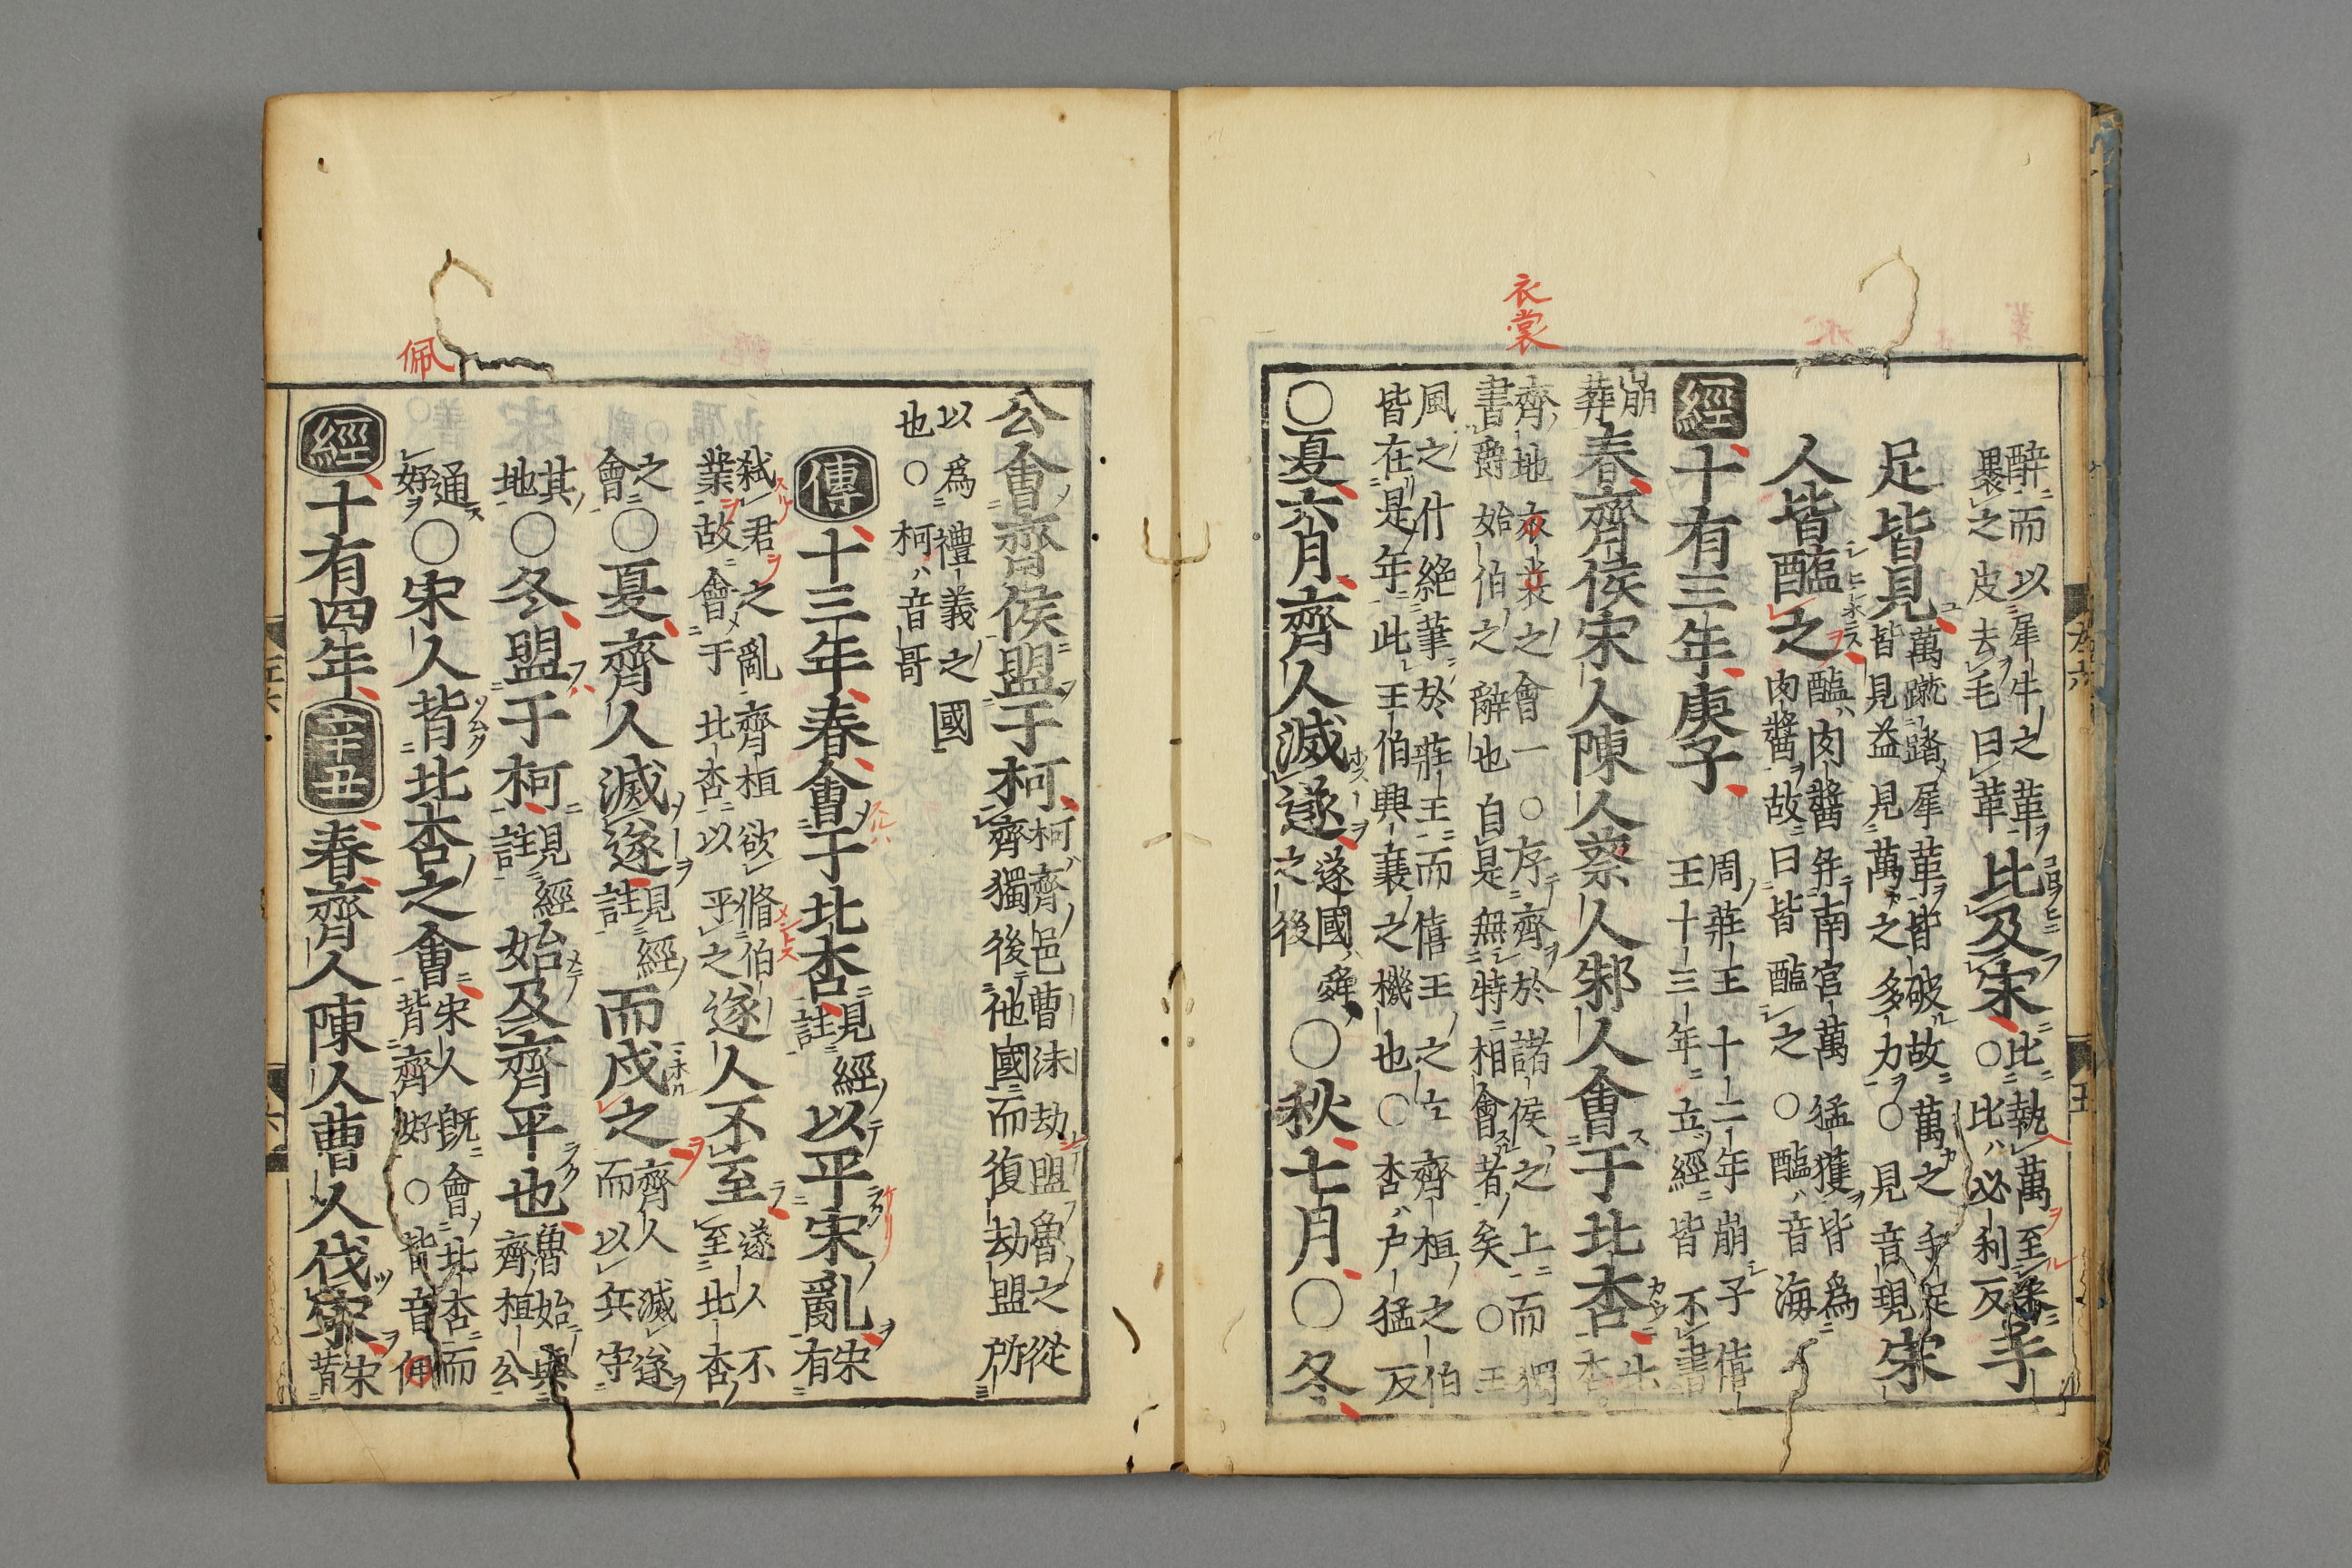 衣裳
醉而以犀牛之革裹之皮去毛曰革比及宋比執萬至宋○比必利反手
足皆見萬蹴踏犀革皆破故萬之手足皆見益見萬之多力○見音現宋
人皆醢之醢肉醬并南宮萬猛獲皆爲肉醬故曰皆醢之○醢音海
經十有三年庚子周莊王十二年崩子僖王十三年立經皆不書
崩葬春齊侯宋人陳人蔡人邾人會于北杏北杏
齊地衣裳之會一○序齊於諸侯之上而獨書爵始伯之辭也自是無特相會者矣○王
風之什絶筆於莊王而僖王之立齊桓之伯皆在是年此王伯興衰之機也○杏户猛反
○夏六月齊人滅遂遂國舜之後○秋七月○冬
公會齊侯盟于柯柯齊邑曹沬劫盟魯之從齊獨後他國而復劫盟所
以爲禮義之國也○柯音哥
傳十三年春會于北杏見經註以平宋亂宋有
弑君之亂齊桓欲脩伯業故會于北杏以平之遂人不至遂人不至北杏
之會○夏齊人滅遂見經註而戍之齊人滅遂而以兵守
其地○冬盟于柯見經註始及齊平也魯始與齊桓公
佩
通好○宋人背北杏之會宋人既會北杏而背齊好○背音佩
經十有四年辛丑春齊人陳人曹人伐宋宋背